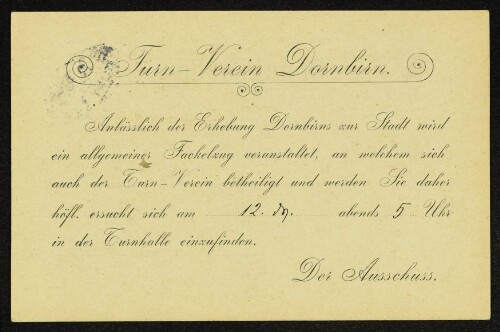 Turn-Verein Dornbirn.
Anlässlich der Erhebung Dornbirns zur Stadt wird
ein allgemeiner Fackelzug veranstaltet, an welchem sich
auch der Turn-Verein betheiligt und werden Sie daher
höfl. ersucht sich am 12. ds. abends 5 Uhr
in der Turnhalle einzufinden.
Der Ausschuss.